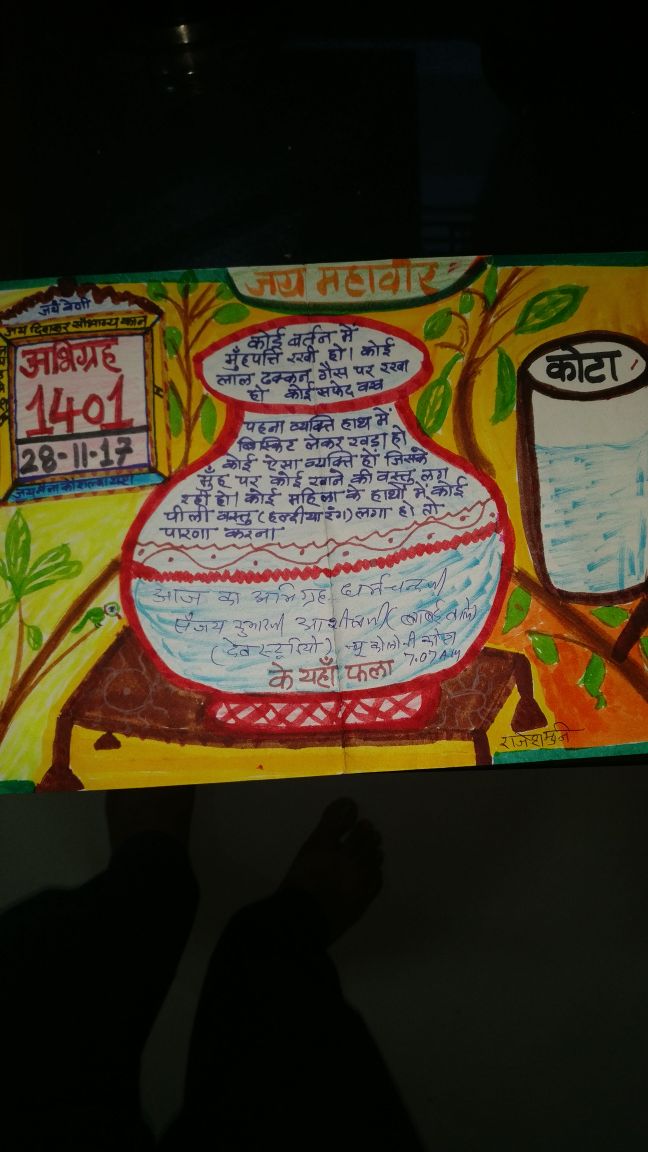 जय महावीर
जय वेणी
जय दिवाकर सौभाग्य कान
अभिग्रह
1401
28-11-17
कोई बर्तन में
मुँहपत्ति रखी हो। कोई
लाल ढक्कन गैस पर रखा
हो कोई सफेद वस्त्र
पहना व्यक्ति हाथ में
बिस्किट लेकर खड़ा हो
कोई ऐसा व्यक्ति हो जिसके
मुँह पर कोई खाने की वस्तु लग
रही हो। कोई महिला के हाथों में कोई
पीली वस्तु (हल्दीया रंग) लगा हो तो
पारणा करना
आज का अभिग्रह धर्मचन्दजी
संजय कुमारजी आशीषजी
के यहाँ फला 7:07 AM
कोटा
राजेशमुनि